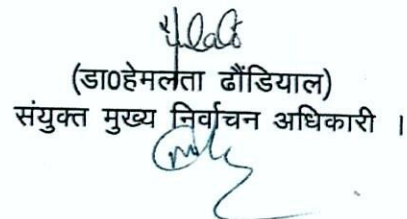 (डा0हेमलता ढौंडियाल)
संयुक्त मुख्य निर्वाचन अधिकारी ।